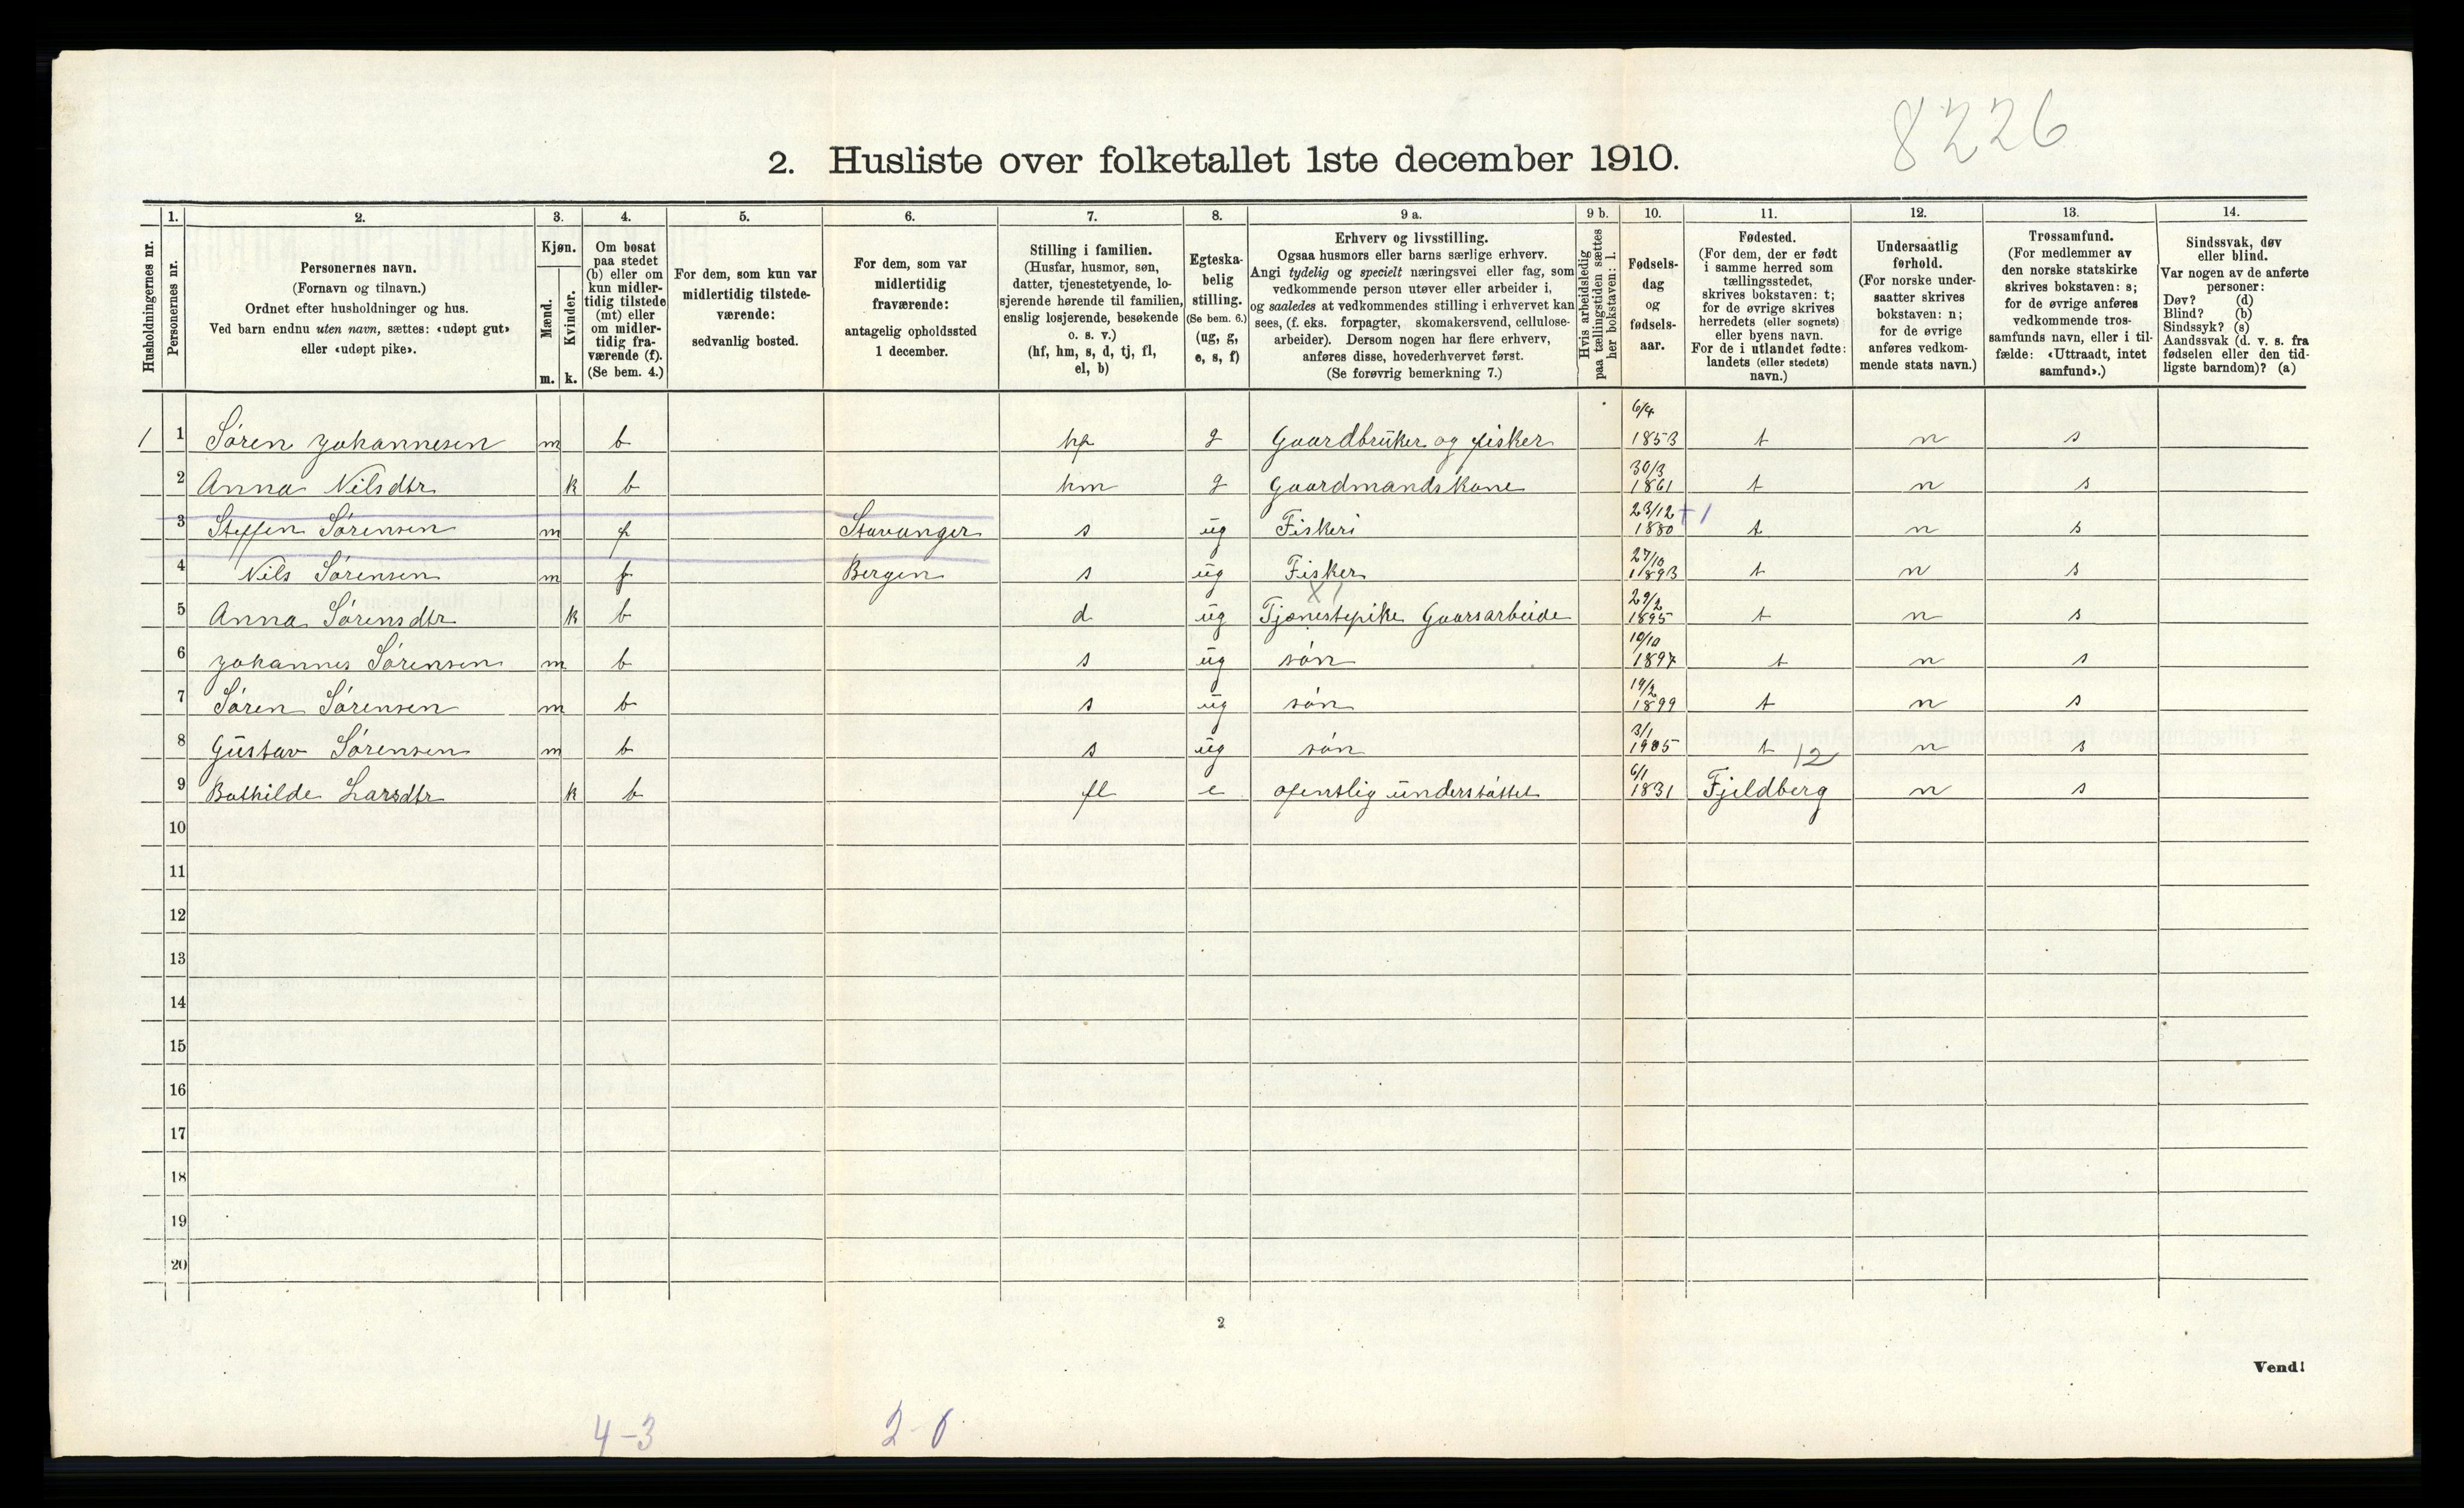 8226
2. Husliste over folketallet 1ste december 1910.
Husholdningernes nr.
1.
Personernes nr.
2.
Personernes navn.
(Fornavn og tilnavn.)
Ordnet efter husholdninger og hus.
Ved barn endnu uten navn, sættes: «udøpt gut»
eller «udøpt pike».
3.
Kjøn.
Mænd.
Kvinder.
m. k.
4.
Om bosat
paa stedet
(b) eller om
kun midler-
tidig tilstede
(mt) eller
om midler-
tidig fra-
værende (f).
(Se bem. 4.)
5.
For dem, som kun var
midlertidig tilstede-
værende:
sedvanlig bosted.
6.
For dem, som var
midlertidig
fraværende:
antagelig opholdssted
1 december.
7.
Stilling i familien.
(Husfar, husmor, søn,
datter, tjenestetyende, lo-
sjerende hørende til familien,
enslig losjerende, besøkende
o. s. v.)
(hf, hm, s, d, tj, fl,
el, b)
8.
Egteska-
belig
stilling.
(Se bem. 6.)
(ug, g,
e, s, f)
9 a.
Erhverv og livsstilling.
Ogsaa husmors eller barns særlige erhverv.
Angi tydelig og specielt næringsvei eller fag, som
vedkommende person utøver eller arbeider i,
og saaledes at vedkommendes stilling i erhvervet kan
sees, (f. eks. forpagter, skomakersvend, cellulose-
arbeider). Dersom nogen har flere erhverv,
anføres disse, hovederhvervet først.
(Se forøvrig bemerkning 7.)
9 b.
Hvis arbeidsledig
paa tællingstiden sættes
her bokstaven: l.
10.
Fødsels-
dag
og
fødsels-
aar.
11.
Fødested.
(For dem, der er født
i samme herred som
tællingsstedet,
skrives bokstaven: t;
for de øvrige skrives
herredets (eller sognets)
eller byens navn.
For de i utlandet fødte:
landets (eller stedets)
navn.)
12.
Undersaatlig
forhold.
(For norske under-
saatter skrives
bokstaven: n;
for de øvrige
anføres vedkom-
mende stats navn.)
13.
Trossamfund.
(For medlemmer av
den norske statskirke
skrives bokstaven: s;
for de øvrige anføres
vedkommende tros-
samfunds navn, eller i til-
fælde: «Uttraadt, intet
samfund».)
14.
Sindssvak, døv
eller blind.
Var nogen av de anførte
personer:
Døv? (d)
Blind? (b)
Sindssyk? (s)
Aandssvak (d. v. s. fra
fødselen eller den tid-
ligste barndom)? (a)
1 1 Søren Johannesen m b hf g Gaardbruker og fisker 6/4 1853 t n s
2 Anna Nilsdtr k b hm g Gaardmandskone 30/3 1861 t n s
3 Steffen Sørensen m f Stavanger s ug Fiskeri 23/12 1880 +1 t n s
4 Nils Sørensen m f Bergen s ug Fisker 27/10 1893 t n s
5 Anna Sørensdtr k b d ug Tjenestepike Gaarsarbeide 29/2 1895 t n s
6 Johannes Sørensen m b s ug søn 10/10 1897 t n s
7 Søren Sørensen m b s ug søn 19/2 1899 t n s
8 Gustav Sørensen m b s ug søn 3/1 1905 t n s
12
9 Bathilde Larsdtr k b fl e ofentlig understøttet 6/1 1831 Fjeldberg n s
10
11
12
13
14
15
16
17
18
19
20
2
Vend!
4-3 2-0